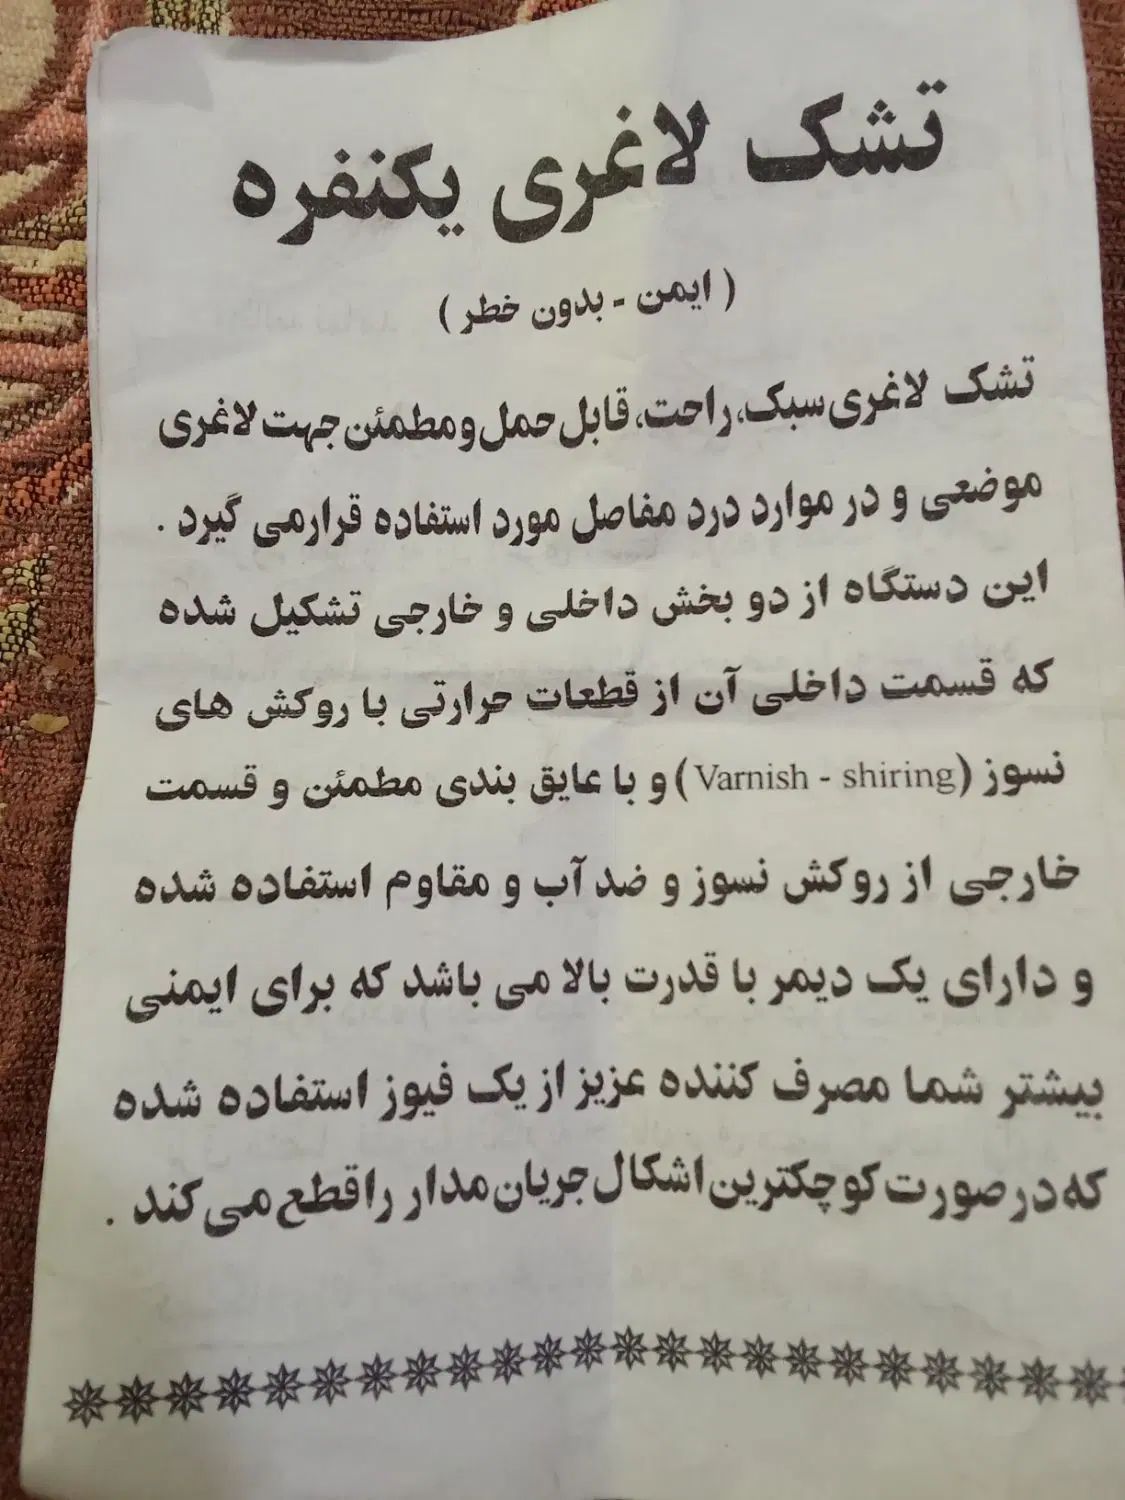 تشک لاغری یکنفره
( ایمن - بدون خطر )
تشک لاغری سبک، راحت، قابل حمل و مطمئن جهت لاغری
موضعی و در موارد درد مفاصل مورد استفاده قرارمی گیرد .
این دستگاه از دو بخش داخلی و خارجی تشکیل شده
که قسمت داخلی آن از قطعات حرارتی با روکش های
نسوز (Varnish - shiring) و با عایق بندی مطمئن و قسمت
خارجی از روکش نسوز و ضد آب و مقاوم استفاده شده
و دارای یک دیمر با قدرت بالا می باشد که برای ایمنی
بیشتر شما مصرف کننده عزیز از یک فیوز استفاده شده
که در صورت کوچکترین اشکال جریان مدار را قطع می کند .